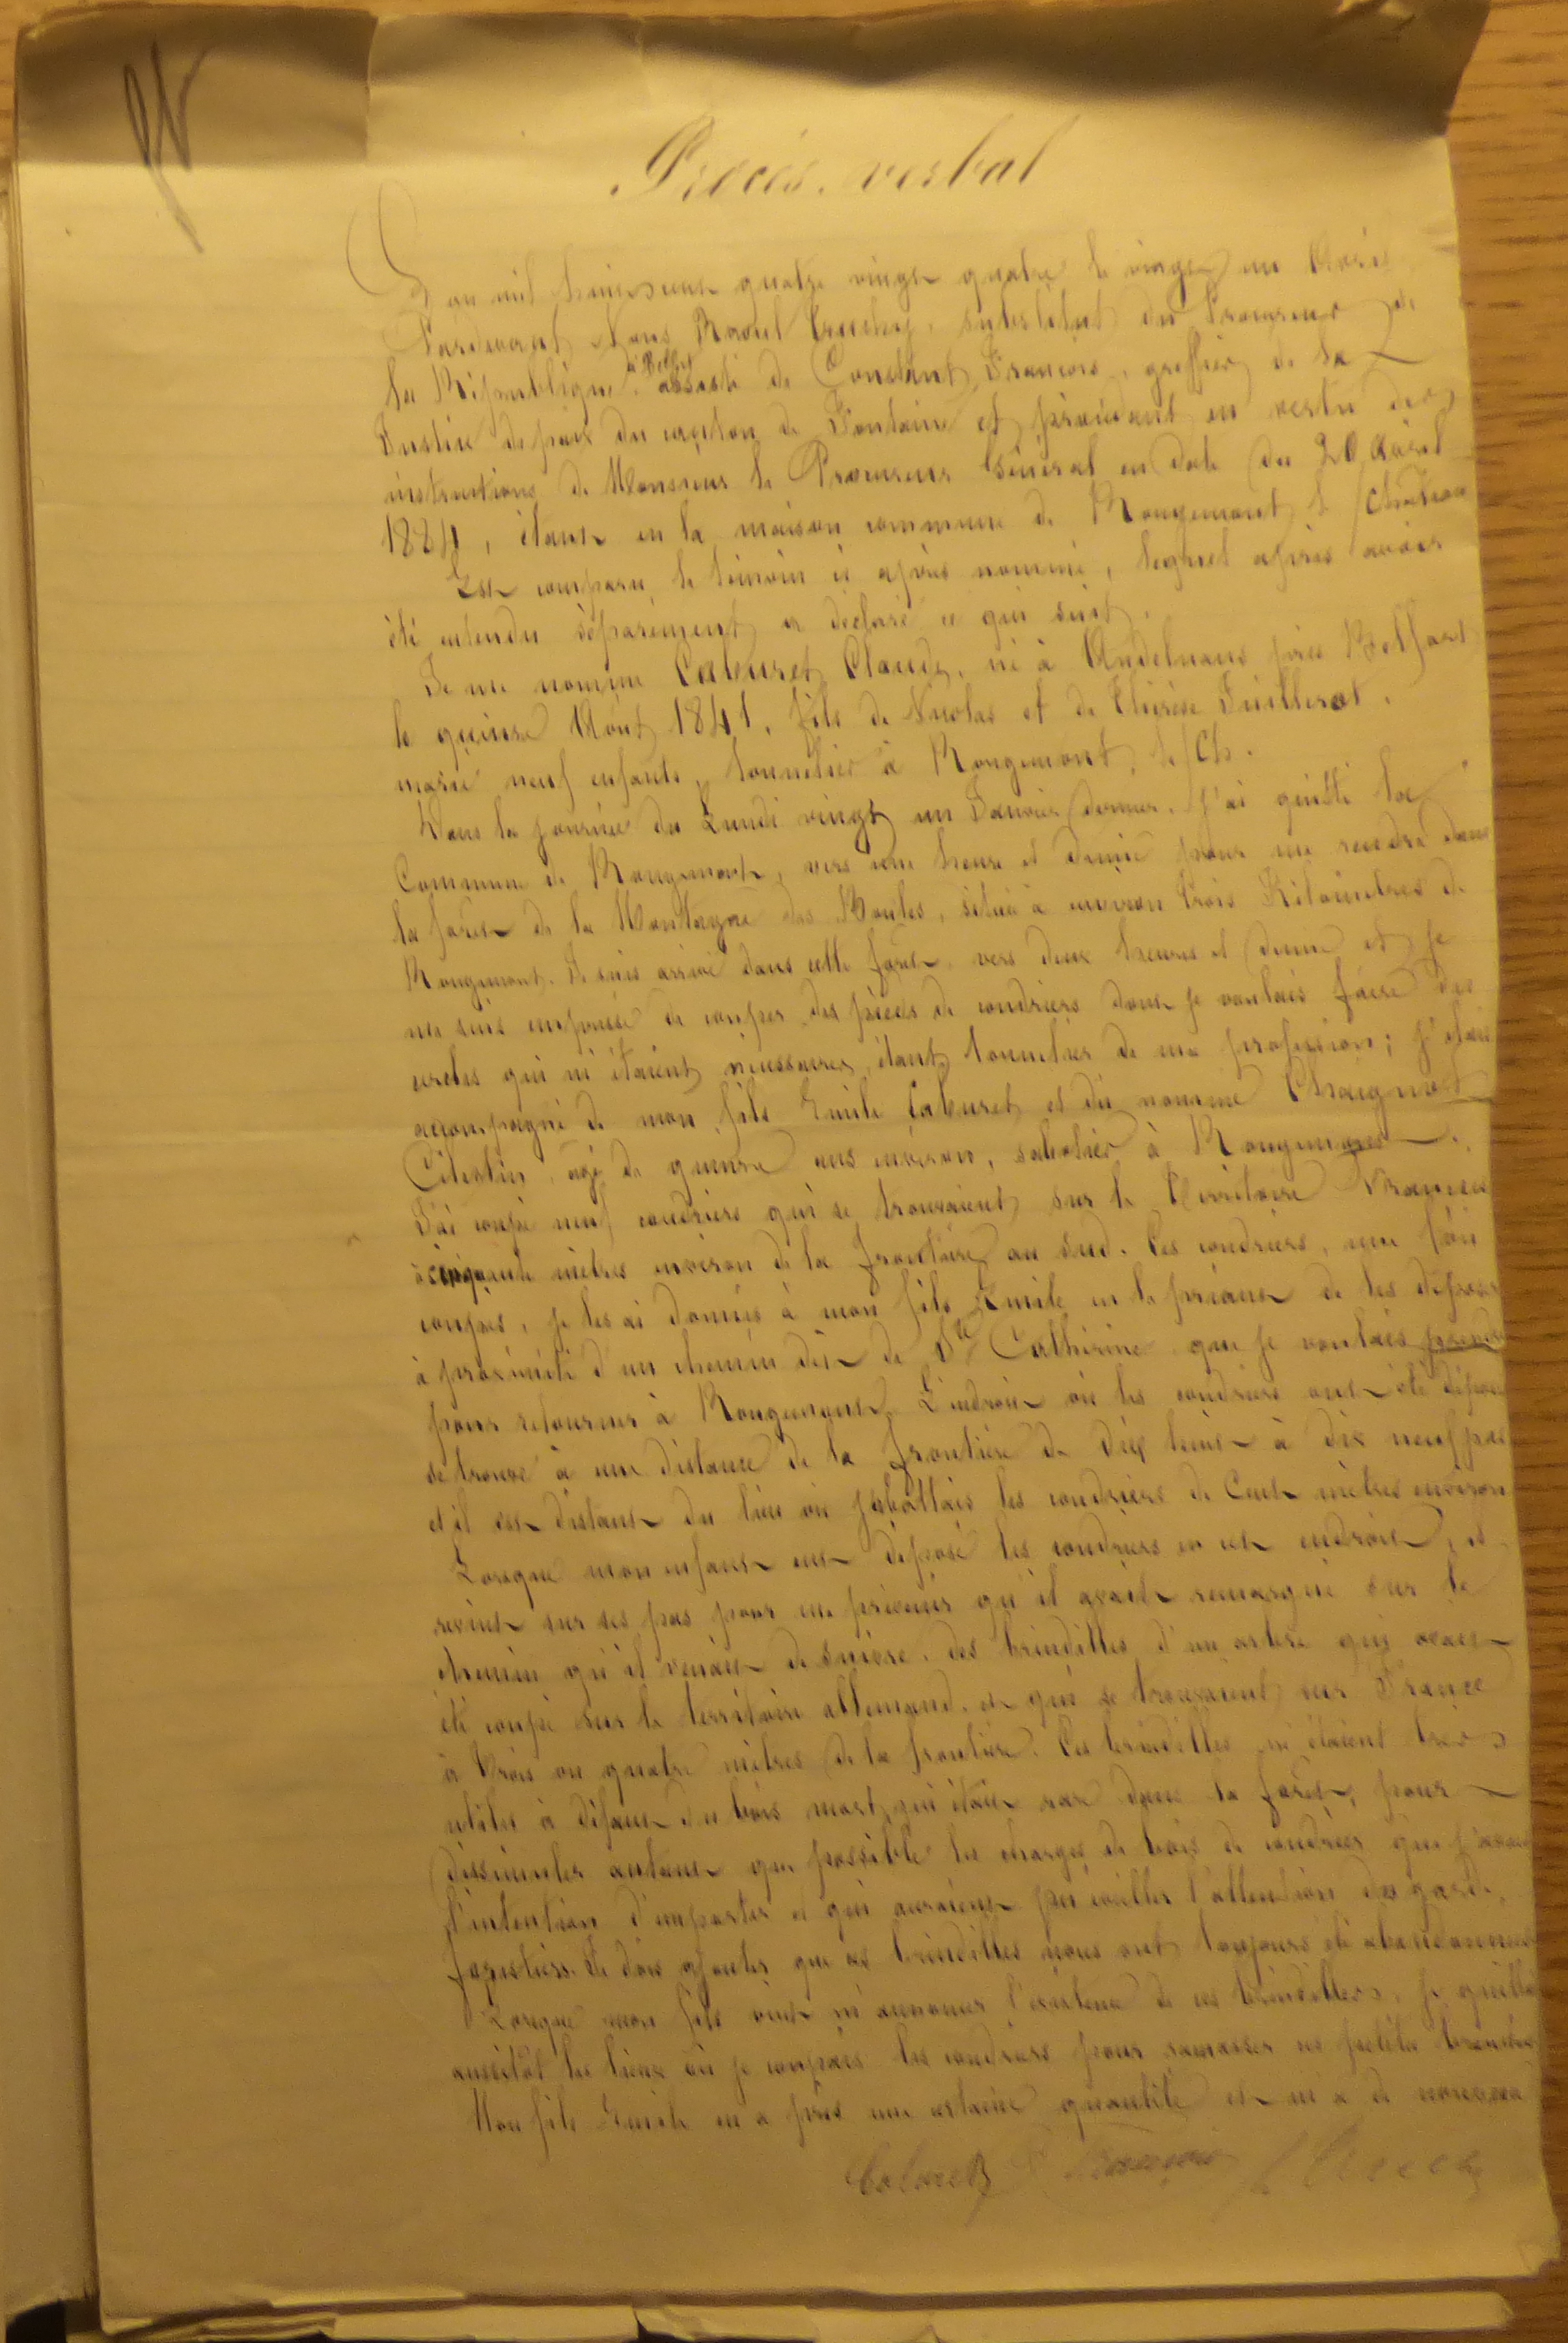 Procès-verbal
L'an mil huit cent quatre vingt quatre le vingt un Avril
Pardevant Nous Raoul substitut du Procureur de
la République à Belfort assisté de Constant François, greffier de la
Justice de paix du canton de Fontaine et procédant en vertu des
instructions de Monsieur le Procureur Général en date du 20 Avril
1884, étant en la maison commune de Rougemont le Château
Est comparu le témoin ci après nommé, lequel après avoir
été entendu séparément a déclaré ce qui suit.
Je me nomme Caburet Claude, né à Andelnans près Belfort
le quinze Août 1841, fils de Nicolas et de Thérèse Juillerat,
marié neuf enfants, tonnelier à Rougemont le Ch.
Dans la journée du Lundi vingt un Janvier dernier, j'ai quitté la
Commune de Rougemont, vers une heure et demie pour me rendre dans
la forêt de la Montagne des Boules, située à environ trois Kilomètres de
Rougemont. Je suis arrivé dans cette forêt vers deux heures et demie et je
me suis empressé de couper des pièces de coudriers dont je voulais faire des
cercles qui m'étaient nécessaires, étant tonnelier de ma profession; j'étais
accompagné de mon fils Emile Caburet et du nommé Chaignot
Célestin, âgé de quinze ans environ, sabotier à Rougemont.
J'ai coupé neuf coudriers qui se trouvaient sur le Territoire Français
à cinquante mètres environ de la frontière au sud. Ces coudriers, une fois
coupés, je les ai donnés à mon fils Emile en le priant de les déposer
à proximité d'un chemin dit de Ste Catherine que je voulais prendre
pour retourner à Rougemont. L'endroit où les coudriers ont été déposés
se trouve à une distance de la frontière de dix huit à dix neuf pas
et il est distant du lieu où j'abattais les coudriers de Cent mètres environ
Lorsque mon enfant eut déposé les coudriers en cet endroit, il
revint sur ses pas pour me prévenir qu'il avait remarqué sur le
chemin qu'il venait de suivre, des brindilles d'un arbre qui avait
été coupé sur le territoire allemand, et qui se trouvaient sur France
à trois ou quatre mètres de la frontière. Ces brindilles m'étaient très
utiles à défaut du bois mort qui était rare dans la forêt, pour
dissimuler autant que possible les charges de bois de coudrier que j'avais
l'intention d'emporter et qui auraient pu éveiller l'attention des gardes
forestiers. Je dois ajouter que ces brindilles nous ont toujours été abandonnées
Lorsque mon fils vint m'annoncer l'existence de ces brindilles, je quittai
aussitôt les lieux où je coupais les coudriers pour ramasser ces petites branches
Mon fils Emile en a pris une certaine quantité et m'a de nouveau
Caburet François